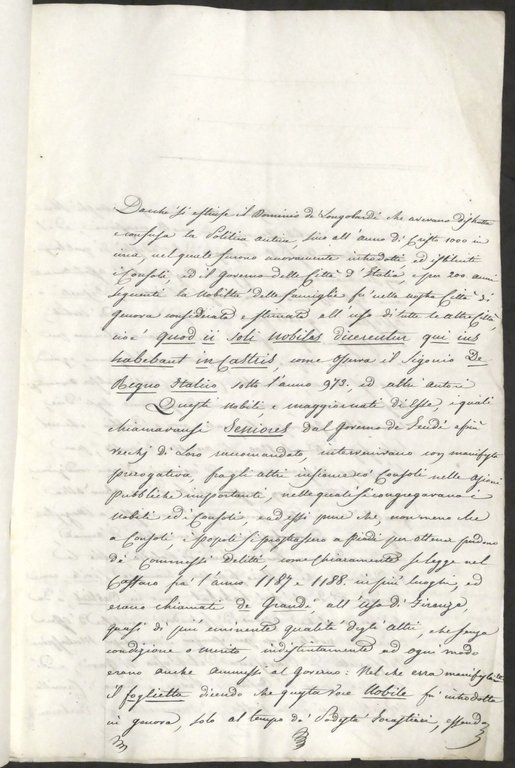 Dacchè si estinse il Dominio de Longobardi che avevano distrutta
e confusa la Politia antica, sino all'anno di Cristo 1000 in
circa, nel quale furono nuovamente introdotti ed istituiti
i Consoli, ed il Governo delle Città d'Italia, e per 200 anni
seguenti la Nobiltà delle famiglie fù nella nostra Città di
Genova considerata e stimata all'uso di tutte le altre Città,
cioè quod ii soli Nobiles dicerentur qui ius
habebant in Castris, come osserva il Sigonio De
Regno Italico sotto l'anno 973. ed altri autori
Questi nobili e maggiornati di Essa, i quali
chiamavansi Seniores dal Governo de Feudi e più
vecchj di Loro raccomandato, intervenivano con manifesta
prerogativa, fra gli altri insieme co' Consoli nelle azioni
Pubbliche importanti, nelle quali si congregavano i
Nobili ed i Consoli, e ad essi pure che, non meno che
a Consoli, i popoli si prostrassero a piedi per ottener perdono
de' commessi delitti, come chiaramente si legge nel
Caffaro frà l'anno 1187 e 1188. in più luoghi, ed
erano chiamati de Grandi, all'uso di Firenze,
quasi di più eminente qualità degli altri, che senza
condizione o merito, indistintamente ad ogni modo
erano anche ammessi al Governo: Nel che erra manifestamente
il foglietta dicendo che questa voce Nobile fù introdotta
in Genova, solo al tempo de' Podestà forastieri, essendo